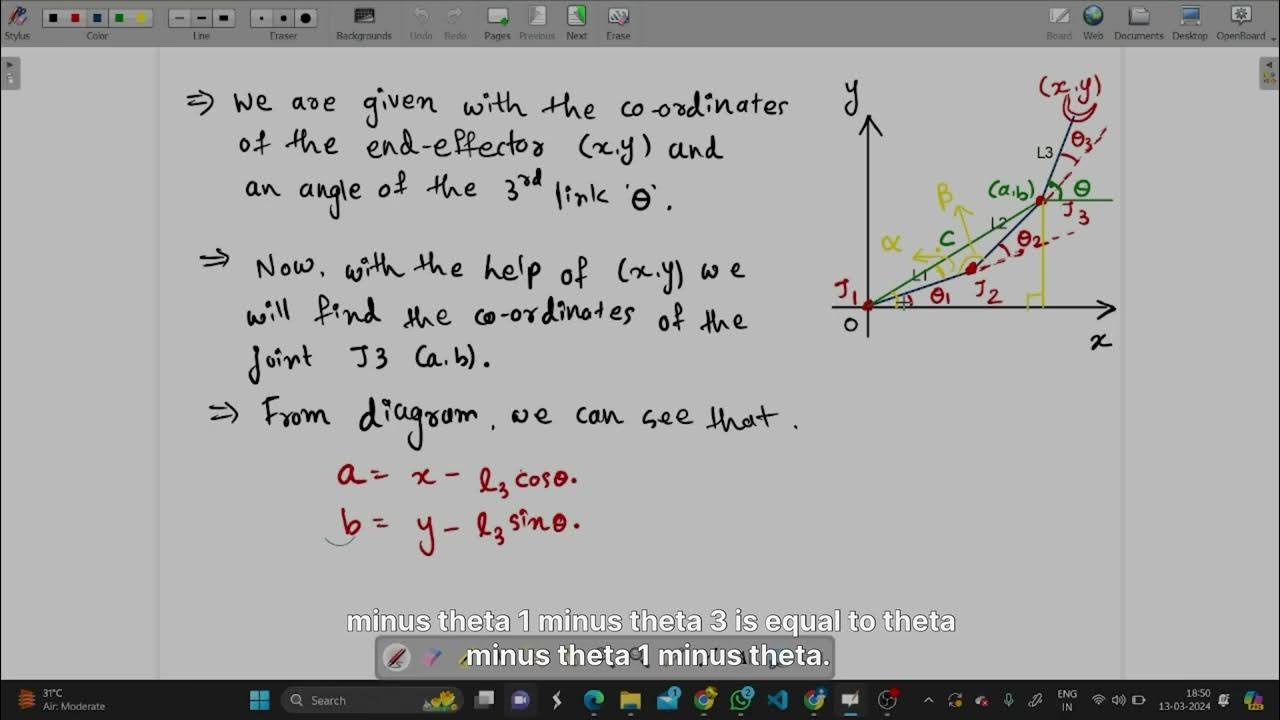 Stylus
Color
Line
Eraser
Backgrounds
Undo
Redo
Pages
Previous
Next
Erase
Board
Web
Documents
Desktop
OpenBoard
⇒ We are given with the co-ordinates
of the end-effector (x,y) and
an angle of the 3rd link 'θ'.
⇒ Now, with the help of (x,y) we
will find the co-ordinates of the
Joint J3 (a,b).
⇒ From diagram, we can see that.
a = x - l₃ cosθ.
b = y - l₃ sinθ.
y
(x,y)
θ3
L3
(a,b)
θ
J3
β
L2
C
θ2
α
L1
J1
θ1
J2
O
x
minus theta 1 minus theta 3 is equal to theta
minus theta 1 minus theta.
31°C
Air: Moderate
Search
ENG
IN
18:50
13-03-2024